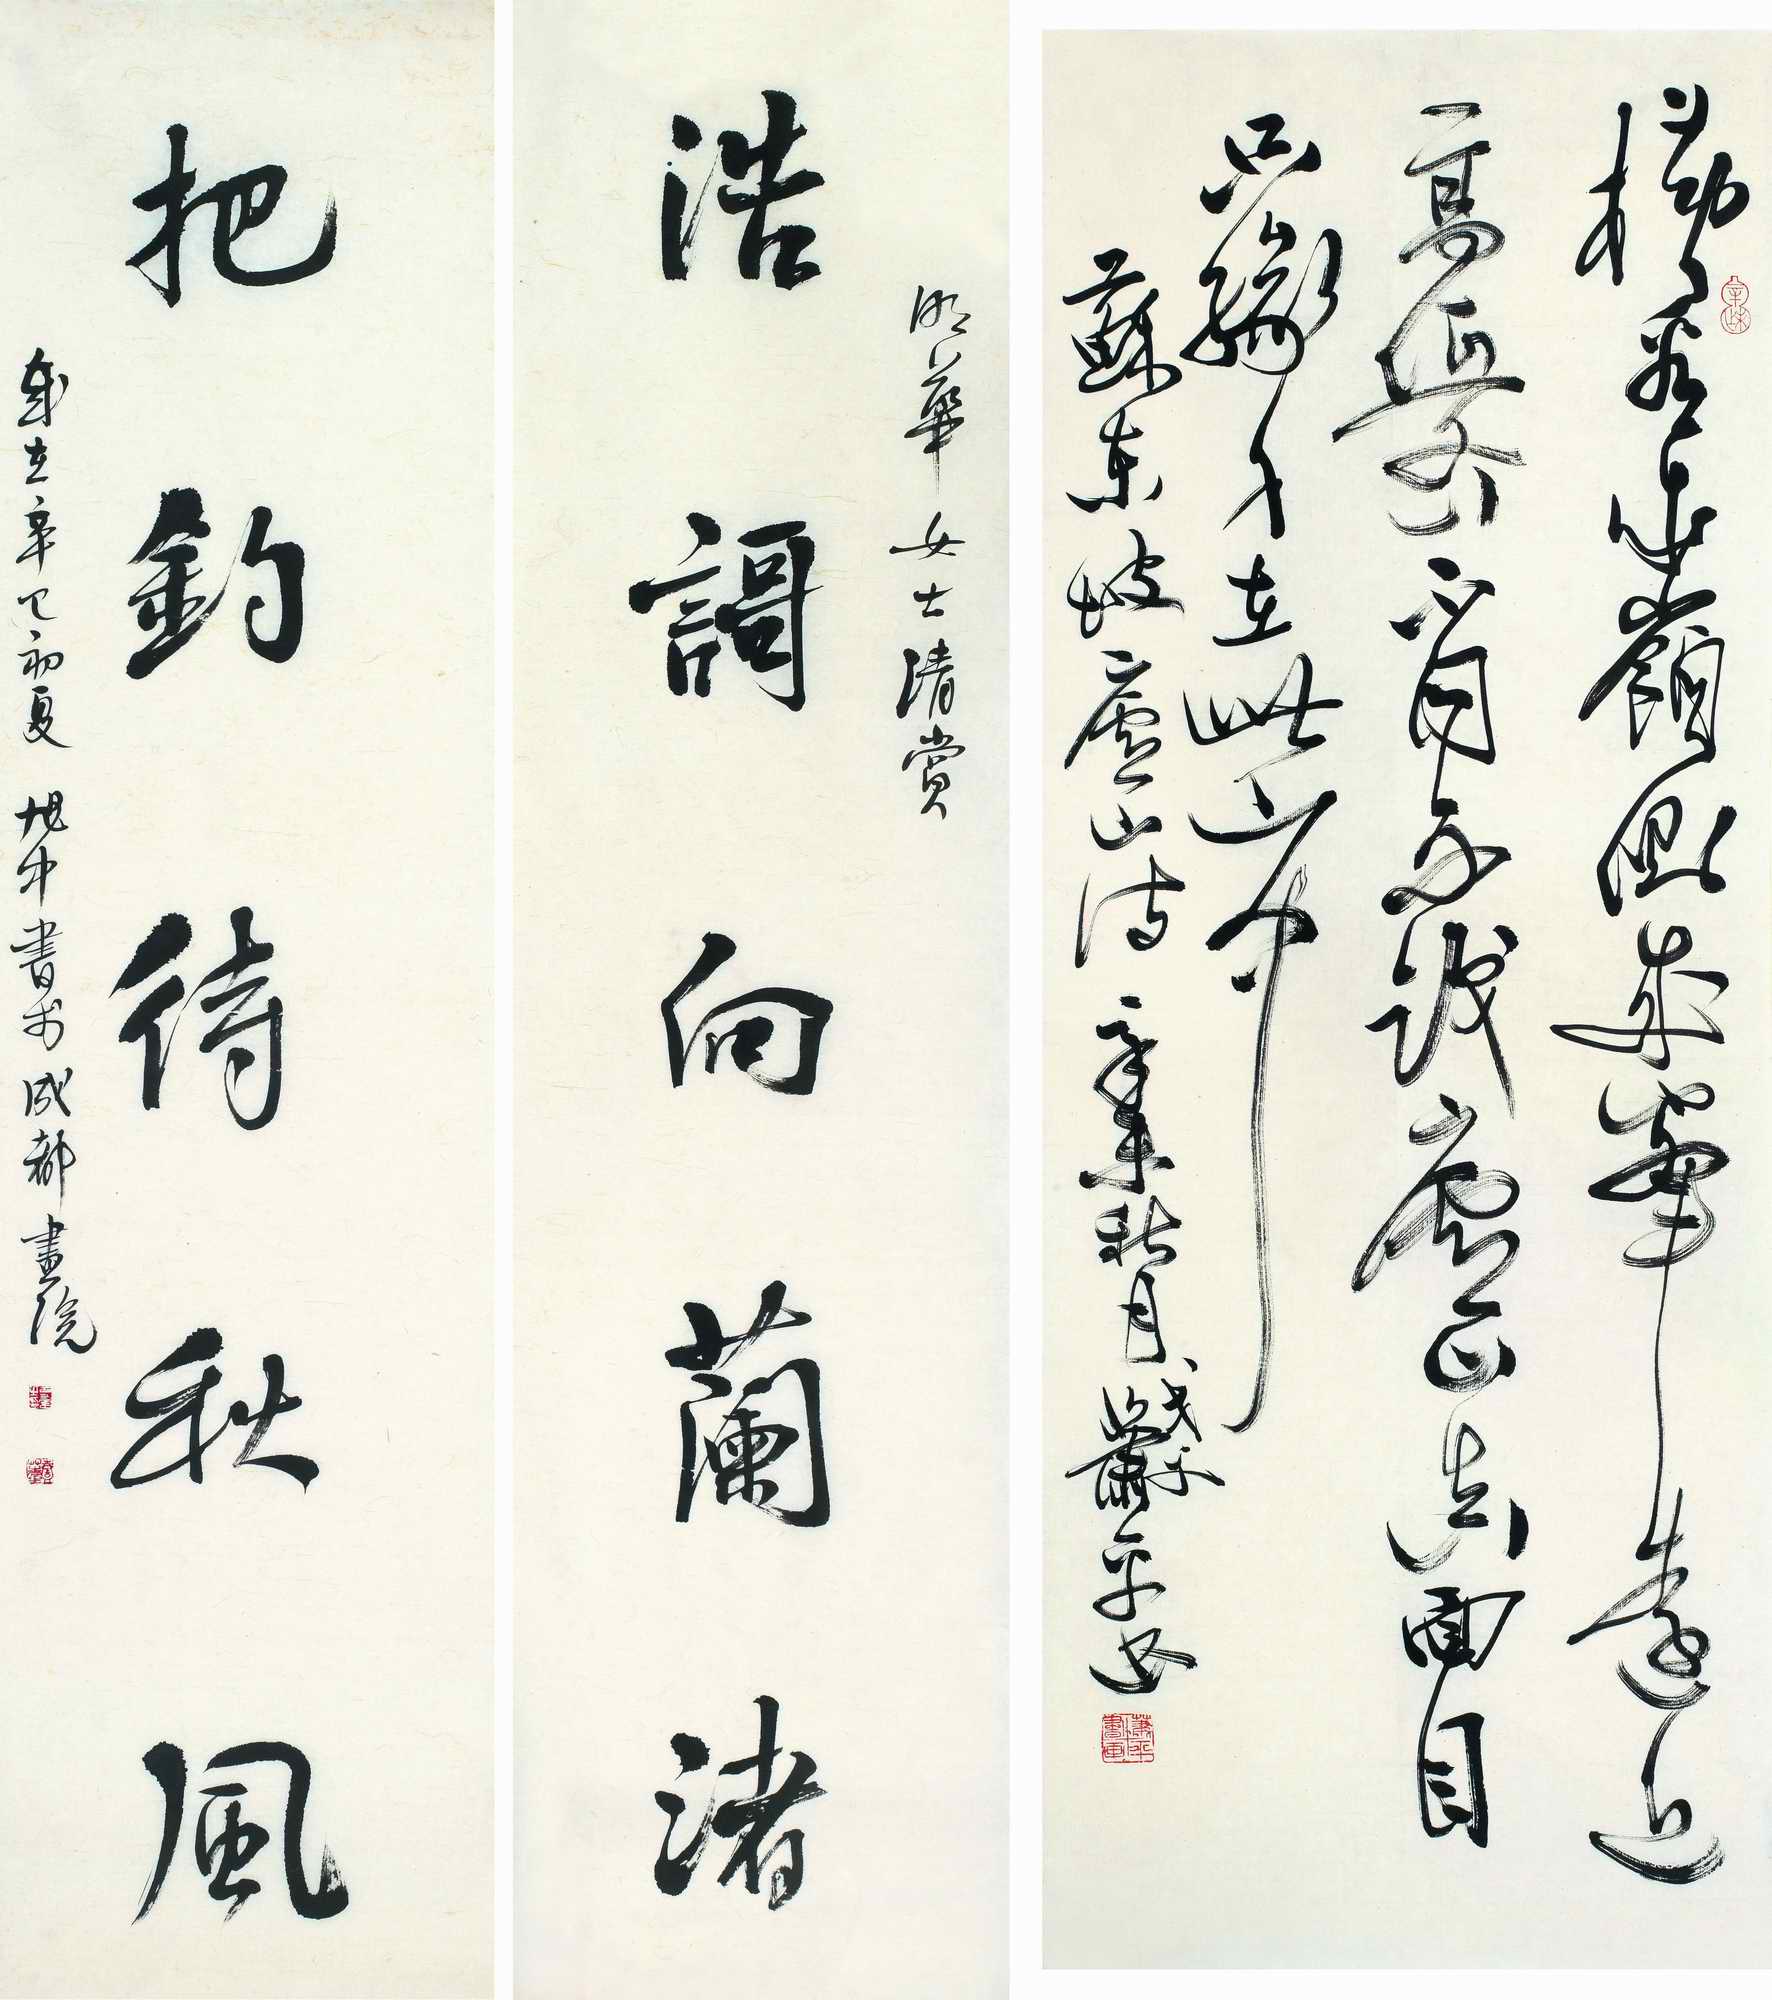 橫看成嶺側成峯遠近
高低各不同不識廬山真面目
只緣身在此山中
蘇東坡廬山詩 辛未秋月 蕭平書
蕭平書畫
明華女士清賞
浩謌向蘭渚
把釣待秋風
歲在辛巳初夏 旭中書於成都畫院